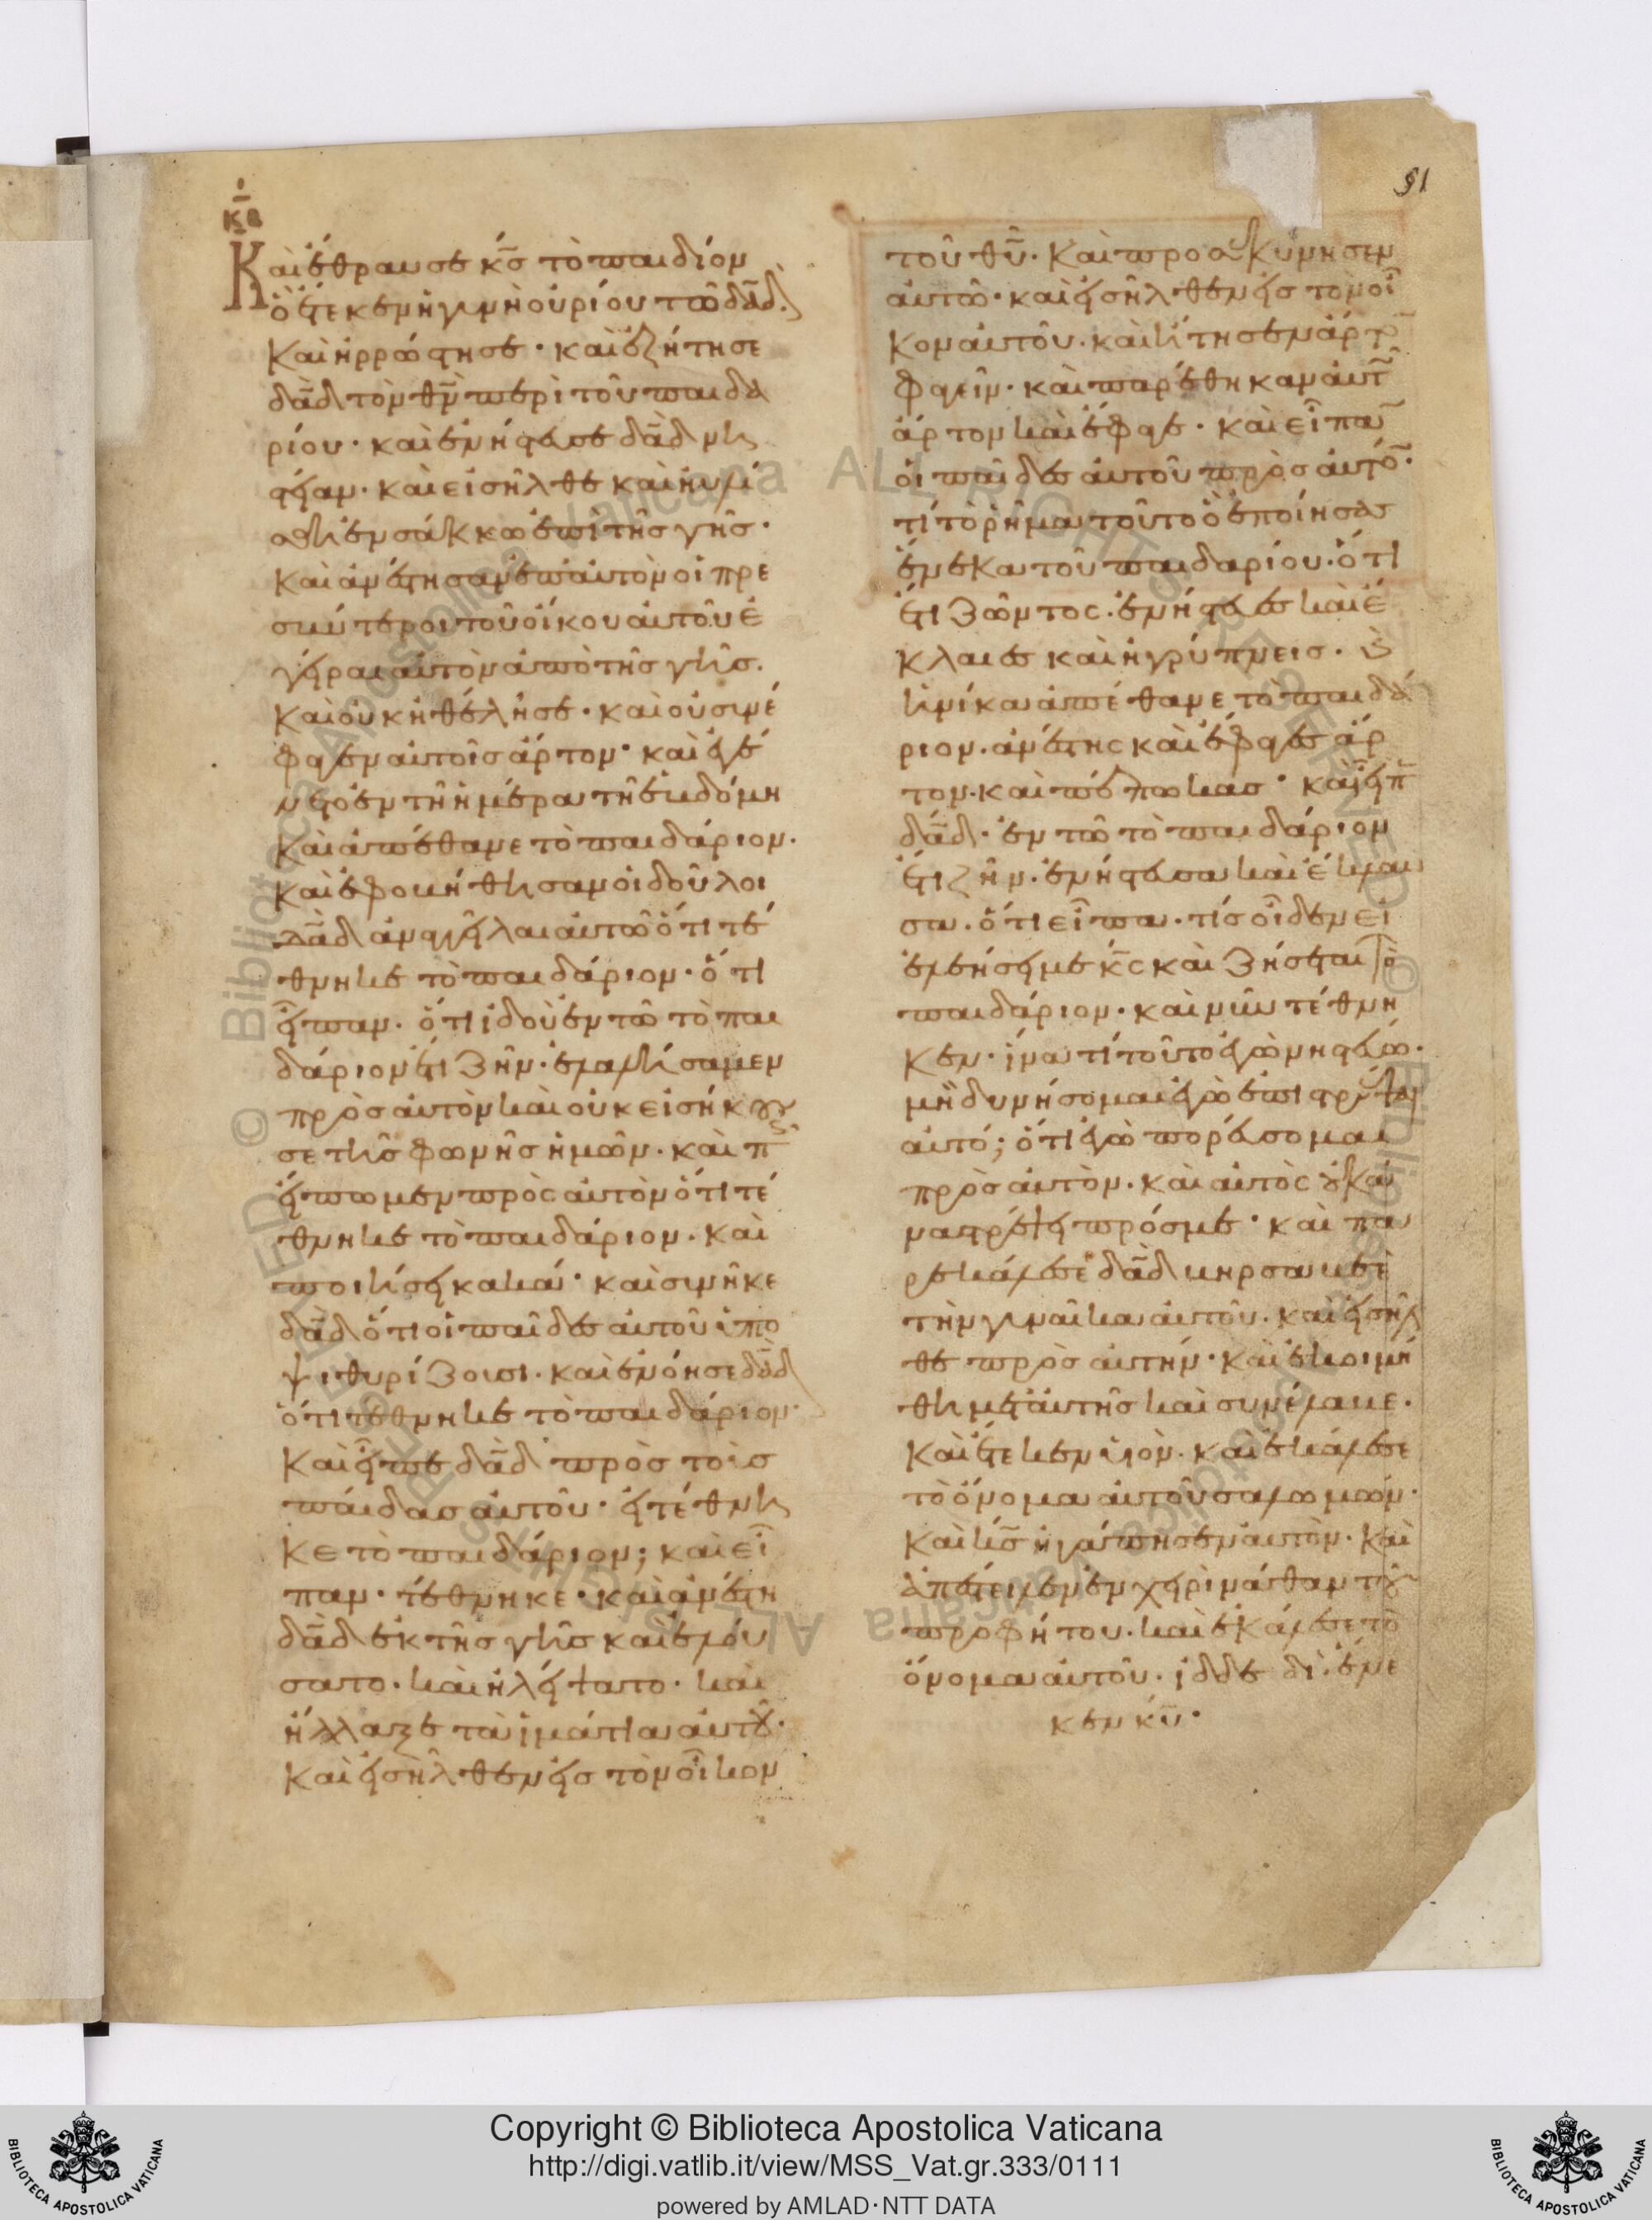 51
κβ
Καὶ ἔθραυσε κ̅ς̅ τὸ παιδίον
ὃ ἔτεκεν ἡ γυνὴ οὐρίου τῶ δα̅δ̅.
Καὶ ἠρρώστησε· καὶ ἐζήτησε
δα̅δ̅ τὸν θ̅ν̅ περὶ τοῦ παιδα
ρίου· καὶ ἐνήστευσε δα̅δ̅ νη
στείαν· καὶ εἰσῆλθε καὶ ηὐλί
σθη ἐν σάκκω ἐπὶ τῆς γῆς·
Καὶ ἀνέστησαν ἐπ' αὐτὸν οἱ πρε
σβύτεροι τοῦ οἴκου αὐτοῦ ἐ
γεῖραι αὐτὸν ἀπὸ τῆς γῆς.
Καὶ οὐκ ἠθέλησε· καὶ οὐ συνέ
φαγεν αὐτοῖς ἄρτον· καὶ ἐγέ
νετο ἐν τῆ ἡμέρα τῆ ἑβδόμη
Καὶ ἀπέθανε τὸ παιδάριον.
Καὶ ἐφοβήθησαν οἱ δοῦλοι
δα̅δ̅ ἀναγγεῖλαι αὐτῶ ὅτι τέ
θνηκε τὸ παιδάριον· ὅτι
εἶπαν· ὅτι ἰδοὺ ἐν τῶ τὸ παι
δάριον ἔτι ζῆν· ἐλαλήσαμεν
πρὸς αὐτὸν καὶ οὐκ εἰσήκου
σε τῆς φωνῆς ἡμῶν. καὶ π
εἴπωμεν πρὸς αὐτὸν ὅτι τέ
θνηκε τὸ παιδάριον. καὶ
ποιήσει κακά· καὶ συνῆκε
δα̅δ̅ ὅτι οἱ παῖδες αὐτοῦ ὑπο
ψιθυρίζουσι. καὶ ἐνόησε δα̅δ̅
ὅτι τέθνηκε τὸ παιδάριον·
Καὶ εἶπε δα̅δ̅ πρὸς τοὺς
παῖδας αὐτοῦ· εἰ τέθνη
κε τὸ παιδάριον; καὶ εἶ
παν· τέθνηκε· καὶ ἀνέστη
δα̅δ̅ ἐκ τῆς γῆς καὶ ἐλού
σατο· καὶ ἠλείψατο· καὶ
ἤλλαξε τὰ ἱμάτια αὐτοῦ·
Καὶ εἰσῆλθεν εἰς τὸν οἶκον
τοῦ θ̅υ̅· Καὶ προσεκύνησεν
αὐτῶ· καὶ εἰσῆλθεν εἰς τὸν οἶ
κον αὐτοῦ. καὶ ἤτησεν ἄρτο
φαγεῖν· καὶ παρέθηκαν αὐτ
ἄρτον καὶ ἔφαγε· καὶ εἶπαν
οἱ παῖδες αὐτοῦ πρὸς αὐτό·
τί τὸ ῥῆμα τοῦτο ὃ ἐποίησας
ἕνεκα τοῦ παιδαρίου. ὅτι
ἔτι ζῶντος· ἐνήστευες καὶ ἔ
κλαιες καὶ ἠγρύπνεις. καὶ
ἡνίκα ἀπέθανε τὸ παιδά
ριον. ἀνέστης καὶ ἔφαγες ἄρ
τον. καὶ πέπωκας· καὶ εἶπ
δα̅δ̅· ἐν τῶ τὸ παιδάριον
ἔτι ζῆν· ἐνήστευσα καὶ ἔκλαυ
σα. ὅτι εἶπα. τίς οἶδεν εἰ
ἐλεήσει με κ̅ς̅ καὶ ζήσεται τὸ
παιδάριον· καὶ νῦν τέθνη
κεν· ἵνα τί τοῦτο ἐγὼ νηστεύω.
μὴ δυνήσομαι ἐγὼ ἐπιστρέψαι
αὐτό; ὅτι ἐγὼ πορεύσομαι
πρὸς αὐτὸν. καὶ αὐτὸς οὐκ ἀ
ναστρέψει πρός με· καὶ πα
ρεκάλεσε δα̅δ̅ βηρσαβεὲ
τὴν γυναῖκα αὐτοῦ. καὶ εἰσῆλ
θε πρὸς αὐτήν· καὶ ἐκοιμή
θη μετ' αὐτῆς καὶ συνέλαβε.
Καὶ ἔτεκεν υἱὸν. καὶ ἐκάλεσε
τὸ ὄνομα αὐτοῦ σαλωμών·
Καὶ κ̅ς̅ ἠγάπησεν αὐτὸν. καὶ
ἀπέστειλεν ἐν χειρὶ νάθαν τοῦ
προφήτου. καὶ ἐκάλεσε τὸ
ὄνομα αὐτοῦ. ἰδδε δι' ἕνε
κεν κ̅υ̅·
Copyright © Biblioteca Apostolica Vaticana
http://digi.vatlib.it/view/MSS_Vat.gr.333/0111
powered by AMLAD·NTT DATA
BIBLIOTECA APOSTOLICA VATICANA
BIBLIOTECA APOSTOLICA VATICANA